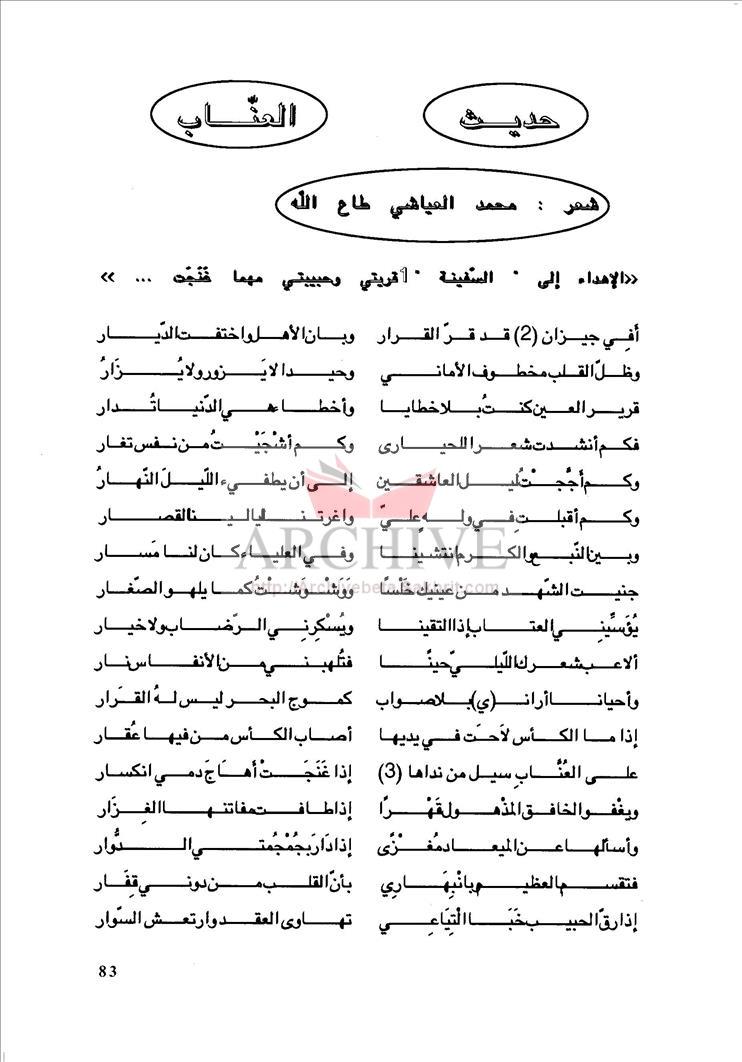 حديث العنّاب
شعر : محمد العياشي طاع الله
«الإهداء إلى " السّفينة "1 قريتي وحبيبتي مهما غَنَجَت ... »
أفِي جيزان (2) قد قرّ القرار وبان الأهل واختفت الدّيار
وظلّ القلب مخطوف الأماني وحيدا لا يَزور ولا يُزَارُ
قرير العين كنتُ بلا خطايا وأخطاء هي الدّنيا تُدار
فكم أنشدت شعرا للحيارى وكم أشْجَيْتُ من نفس تغار
وكم أجَّجْتُ ليل العاشقين إلى أن يطفيء اللّيلَ النّهارُ
وكم أقبلتِ في وله عليّ واغرتنا ليالينا القصار
وبين النّبع والكرم انتشينا وفي العلياء كان لنا مَسَار
جنيت الشّهد من عينيك خَلْسًا وَوَشْوَشْتُ كما يلهو الصّغار
يُؤَسِّيني العتاب إذا التقينا ويُسْكرني الرّضاب ولا خيار
ألاعب شعرك اللّيليّ حينًا فتُلهبني من الأنفاس نار
وأحيانا أراني (ي) بلا صواب كموج البحر ليس لهُ القرَار
إذا ما الكأس لاَحت في يديها أصاب الكأس من فيها عُقار
على العُنَّابِ سيل من نداها (3) إذا غَنَجَتْ أهاجَ دمي انكسار
ويغفو الخافق المذهول قَهْرًا إذا طافت مفاتنها الغِزَار
وأسألها عن الميعاد مُغْزًى إذا دَارَ بجُمْجُمتي الدُّوار
فتقسم العظيم بانْبِهَاري بأنّ القلب من دوني قِفَار
إذا رقّ الحبيب خَبَا الْتِيَاعِي تهاوى العقد وارتعش السّوار
83
ARCHIVE
http://Archivebeta.Sakhrit.com